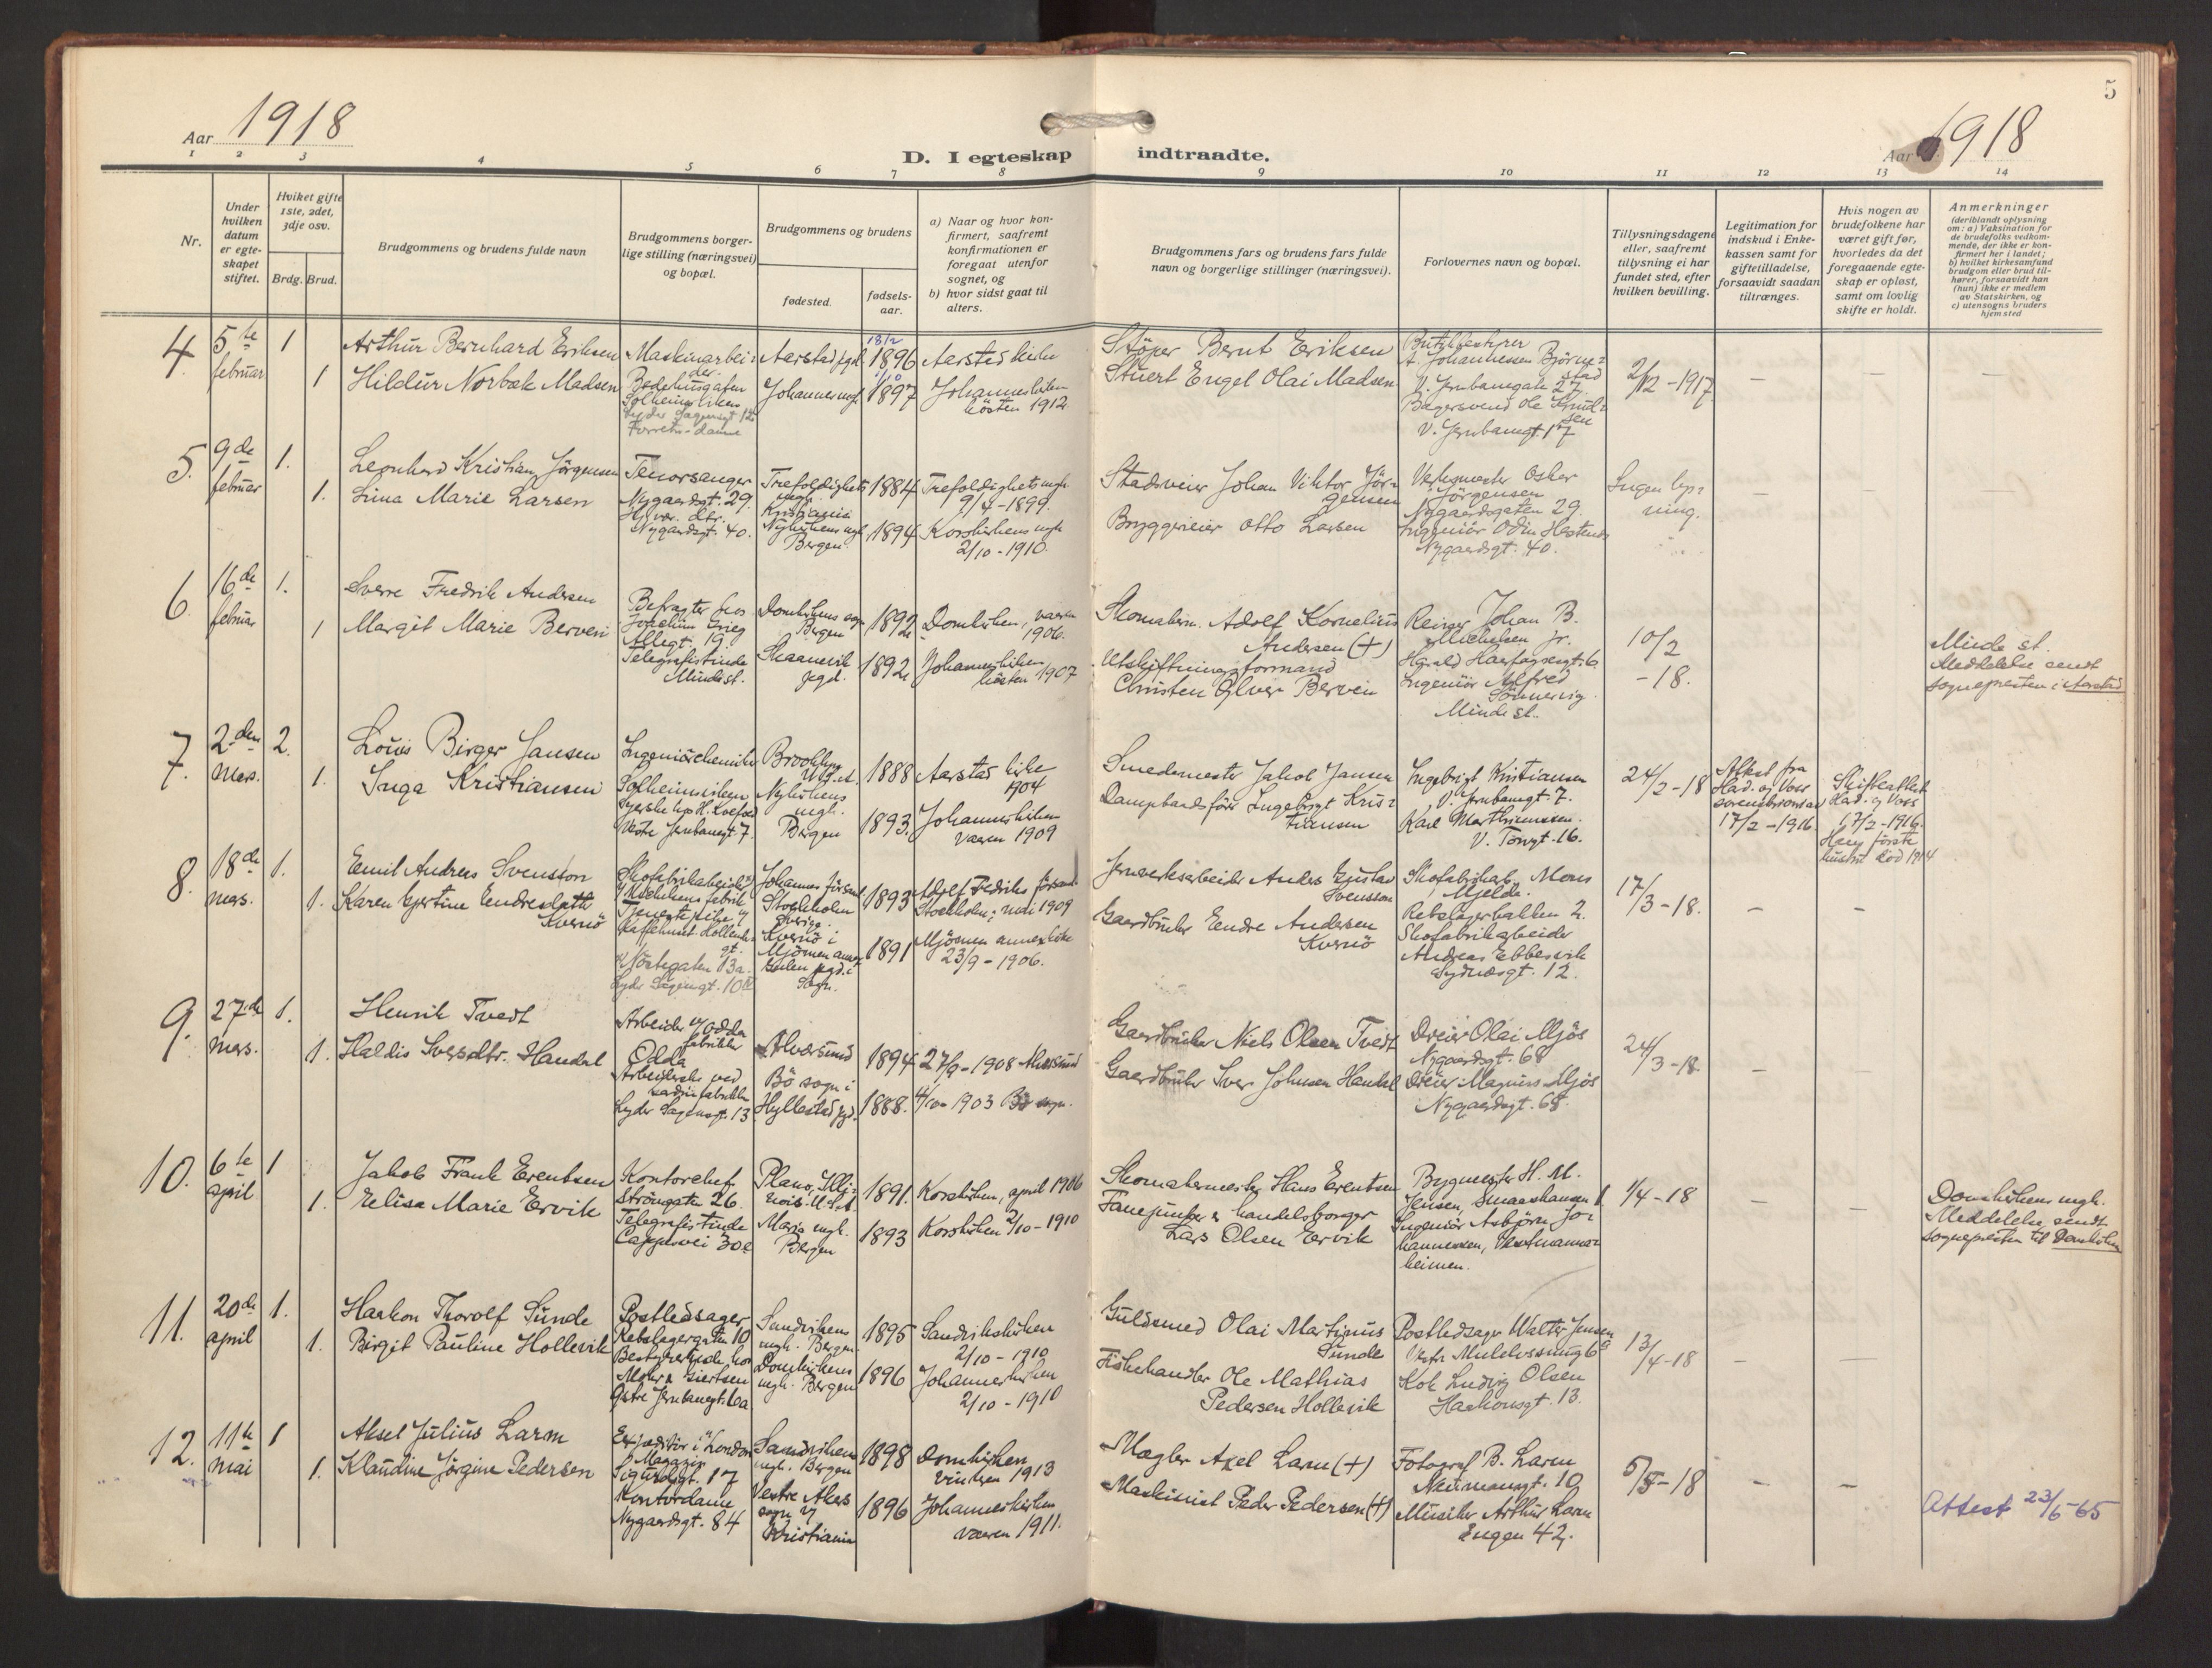 5
Aar 1918
D. I egteskap indtraadte.
Aar 1918
1 2 3 4 5 6 7 8 9 10 11 12 13 14
Nr.
Under hvilken datum er egteskapet stiftet.
Hvilket gifte 1ste, 2det, 3dje osv.
Brdg. Brud.
Brudgommens og brudens fulde navn
Brudgommens borgerlige stilling (næringsvei) og bopæl.
Brudgommens og brudens
fødested.
fødselsaar.
a) Naar og hvor konfirmert, saafremt konfirmationen er foregaat utenfor sognet, og
b) hvor sidst gaat til alters.
Brudgommens fars og brudens fars fulde navn og borgerlige stillinger (næringsvei).
Forlovernes navn og bopæl.
Tillysningsdagene eller, saafremt tillysning ei har fundet sted, efter hvilken bevilling.
Legitimation for indskud i Enkekassen samt for giftetilladelse, forsaavidt saadan tiltrænges.
Hvis nogen av brudefolkene har været gift før, hvorledes da det foregaaende egteskap er opløst, samt om lovlig skifte er holdt.
Anmerkninger
(deriblandt oplysning om: a) Vaksination for de brudefolks vedkommende, der ikke er konfirmert her i landet; b) hvilket kirkesamfund brudgom eller brud tilhører, forsaavidt han (hun) ikke er medlem av Statskirken, og c) utensogns bruders hjemsted
4. 5te februar 1 1
Arthur Bernhard Eriksen
Hildur Norbak Madsen
Maskinarbeider
Bedehusgaten
Solheimsviken
Aarstad pgd. 1896 Aarstad kirke
Johannes mgh. 1897 Johanneskirken
høsten 1912
Støper Bernt Eriksen
Stuert Engel Olai Madsen
A. Johannessen Bjørnestad
V. Jernbanegate 27
Bagersvend Ole Knudsen
V. Jernbanegt. 17
2/12 - 1917
5. 9de februar 1. 1.
Leonhard Kristian Jørgensen
Lina Marie Larsen
Tenorsanger
Nygaardsgt. 29.
Nygaardsgt. 40.
Trefoldighets mgh. Kristiania 1884 Trefoldighets mgh.
9/4 - 1899.
Nykirkens mgh. Bergen. 1894 Korskirkens mgh.
2/10 - 1910.
Stadsveier Johan Viktor Jørgensen
Bryggerieier Otto Larsen
Verksmester Oskar Jørgensen
Nygaardsgaten 29.
Nygaardsgt. 40.
Ingen lysning.
6. 16de februar 1. 1
Sverre Fredrik Andersen
Margit Marie Berven
Befragter hos
Joachim Grieg
Allegt. 19.
Telegrafistinde
Minde st.
Domkirkens sogn Bergen 1892 Domkirken, vaaren 1906.
Skaanevik pgd. 1892 Johanneskirken høsten 1907
Skomakerm. Adolf Kornelius Andersen (+)
Utskiftningsformand
Christen Ølver Berven
Johan B. Michelsen jr.
Harald Haarfagresgt. 6
Ingeniør Alfred
Minde st.
10/2 - 18.
Minde st.
Meddelelse sendt
sognepresten i Aarstad
7. 2den mars. 2. 1.
Louis Birger Jansen
Inga Kristiansen
Ingeniørchemiker
Solheimsviken
Vestre Jernbanegt. 7.
Brooklyn U.S.A. 1888 Aarstad kirke 1904
Nykirkens mgh. Bergen 1893. Johanneskirken
vaaren 1909
Smedemester Jakob Jansen
Dampbaadsfører Ingebrigt Kristiansen
Ingebrigt Kristiansen
V. Jernbanegt. 7.
Karl Marthinussen
V. Torvgt. 16.
24/2 - 18
Attest fra
Hard. og Voss
sorenskriveri av
17/2 - 1916
Skifteattest
Hard. og Voss
17/2 - 1916.
Hans første
hustru død 1914
8. 18de mars. 1. 1.
Emil Andreas Svensson
Karen Gjertine Endresdatter Kvernø
Skofabrikarbeider
Nøstegaten 13a.
Johannes førsaml. Stockholm Sverige. 1893 Adolf Fredriks førsaml.
Stockholm, mai 1909
Kvernø i Mjømen annex Gulen pgd. i Sogn. 1891 Mjømen annexkirke
23/9 - 1906.
Jernverksarbeider Anders Gustav Svensson
Gaardbruker Endre Andersen Kvernø
Skofabrikarb. Mons Mjelde.
Rebslagerbakken 2.
Skofabrikarbeider
Andreas Ebbesvik
Sydnæsgt. 12.
17/3 - 18.
9. 27de mars. 1. 1.
Henrik Tvedt
Haldis Sversdtr. Handal
Arbeider v/ Odda fabrikker
Odda
Arbeiderske ved sardinfabrikken
Lyder Sagensgt. 13
Alversund 1894 27/9 - 1908 Alversund
Bø sogn i Hyllestad pgd. 1888. 4/10 1903 Bø sogn.
Gaardbruker Niels Olsen Tvedt
Gaardbruker Sver Johnsen Handal
Dreier Olai Mjøs
Nygaardsgt. 68
Dreier Magnus Mjøs
Nygaardsgt. 68.
24/3 - 18.
10. 6te april 1 1.
Jakob Frank Erentsen
Elisa Marie Ervik
Kontorchef
Strømgaten 26.
Telegrafistinde
Cappesvei 30c
Plano, Illinois. U.S.A. 1891. Korskirken, april 1906
Maria mgh. Bergen 1893 Korskirken 2/10 - 1910
Skomakermester Hans Erentsen
Fanejunker & handelsborger
Lars Olsen Ervik
Bygmester H. M.
Jensen, Smaashansen 1
Ingeniør Asbjørn Johannessen, Vestmannaheimen.
1/4 - 18
Domkirkens mgh.
Meddelelse sendt
sognepresten til Domkirken
11. 20de april 1. 1.
Haakon Thorolf Sunde
Birgit Pauline Hollevik
Postledsager
Rebslagergaten 10
Bestyrerinde hos
Mohr & Giertsen
Østre Jernbanegt. 10a
Sandvikens mgh. Bergen 1895 Sandvikskirken
2/10 - 1910
Domkirkens mgh. Bergen 1896 Johanneskirken
2/10 - 1910
Guldsmed Olai Martinus Sunde
Fiskehandler Ole Mathias
Pedersen Hollevik
Postledsager Walter Jensen
Kok Ludvig Olsen
Haakonsgt. 13.
13/4 - 18
12. 11te mai 1 1.
Aksel Julius Larm
Klaudine Jørgine Pedersen
Expeditør i "London Magazin"
Sigurdsgt. 17
Kontordame
Nygaardsgt. 84
Sandvikens mgh. Bergen 1898 Domkirken
vinteren 1913
Vestre Akers sogn v/ Kristiania 1896 Johanneskirken
vaaren 1911.
Mægler Axel Larm (+)
Maskinist Peder Pedersen (+)
Fotograf B. Larm
Neumannsgt. 10
Musiker Arthur Larm
Engen 42.
5/5 - 18
Attest 23/6-65